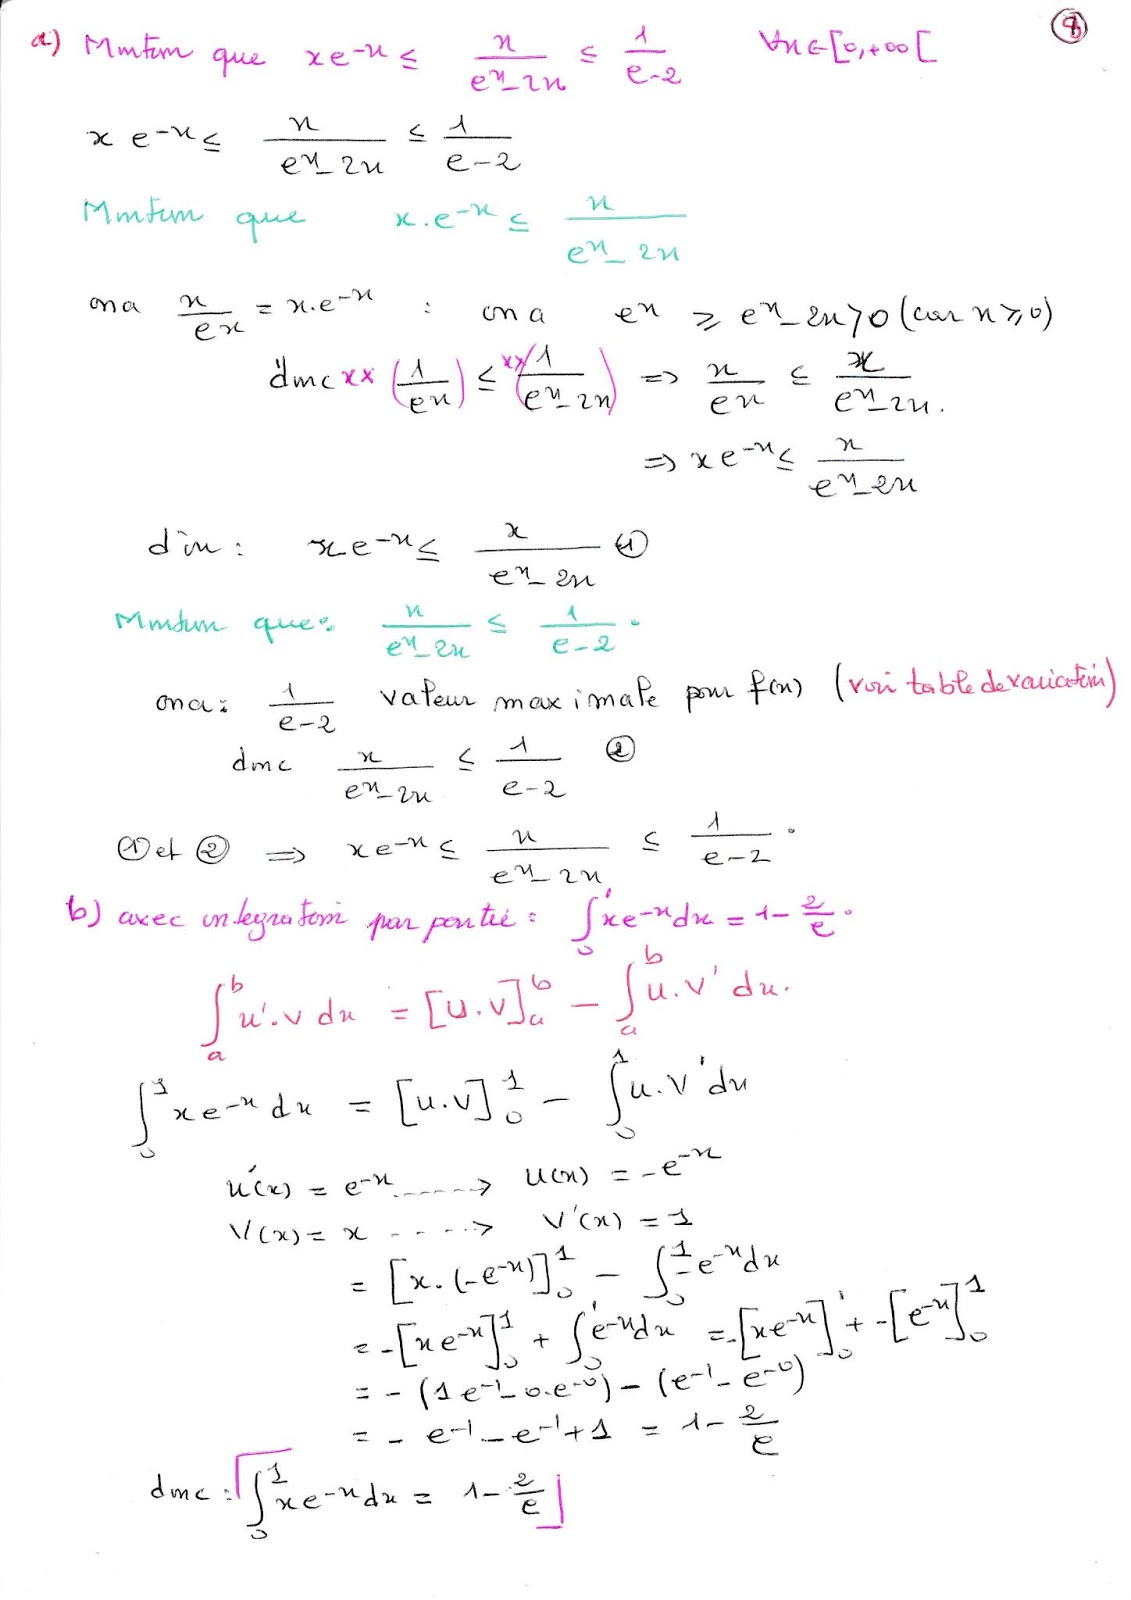 9
a) Montrons que xe^{-x} ≤ x/(e^x - 2x) ≤ 1/(e-2) ∀x∈[0,+∞[
x e^{-x} ≤ x/(e^x - 2x) ≤ 1/(e-2)
Montrons que x.e^{-x} ≤ x/(e^x - 2x)
on a x/e^x = x.e^{-x} : on a e^x ≥ e^x - 2x > 0 (car x ≥ 0)
donc x× (1/e^x) ≤ x×(1/(e^x - 2x)) => x/e^x ≤ x/(e^x - 2x).
=> xe^{-x} ≤ x/(e^x - 2x)
d'où : xe^{-x} ≤ x/(e^x - 2x) ①
Montrons que: x/(e^x - 2x) ≤ 1/(e-2).
on a: 1/(e-2) valeur maximale pour f(x) (voir table de variation)
donc x/(e^x - 2x) ≤ 1/(e-2) ②
① et ② => xe^{-x} ≤ x/(e^x - 2x) ≤ 1/(e-2).
b) avec integration par partie : ∫_0^1 xe^{-x}dx = 1 - 2/e.
∫_a^b u'.v dx = [u.v]_a^b - ∫_a^b u.v' dx.
∫_0^1 xe^{-x} dx = [u.v]_0^1 - ∫_0^1 u.v'dx
u'(x) = e^{-x} ......-> u(x) = -e^{-x}
V(x) = x - - - -> V'(x) = 1
= [x.(-e^{-x})]_0^1 - ∫_0^1 -e^{-x}dx
= -[xe^{-x}]_0^1 + ∫_0^1 e^{-x}dx = -[xe^{-x}]_0^1 + -[e^{-x}]_0^1
= - (1e^{-1} - 0.e^{-0}) - (e^{-1} - e^{-0})
= - e^{-1} - e^{-1} + 1 = 1 - 2/e
donc : ∫_0^1 xe^{-x}dx = 1 - 2/e